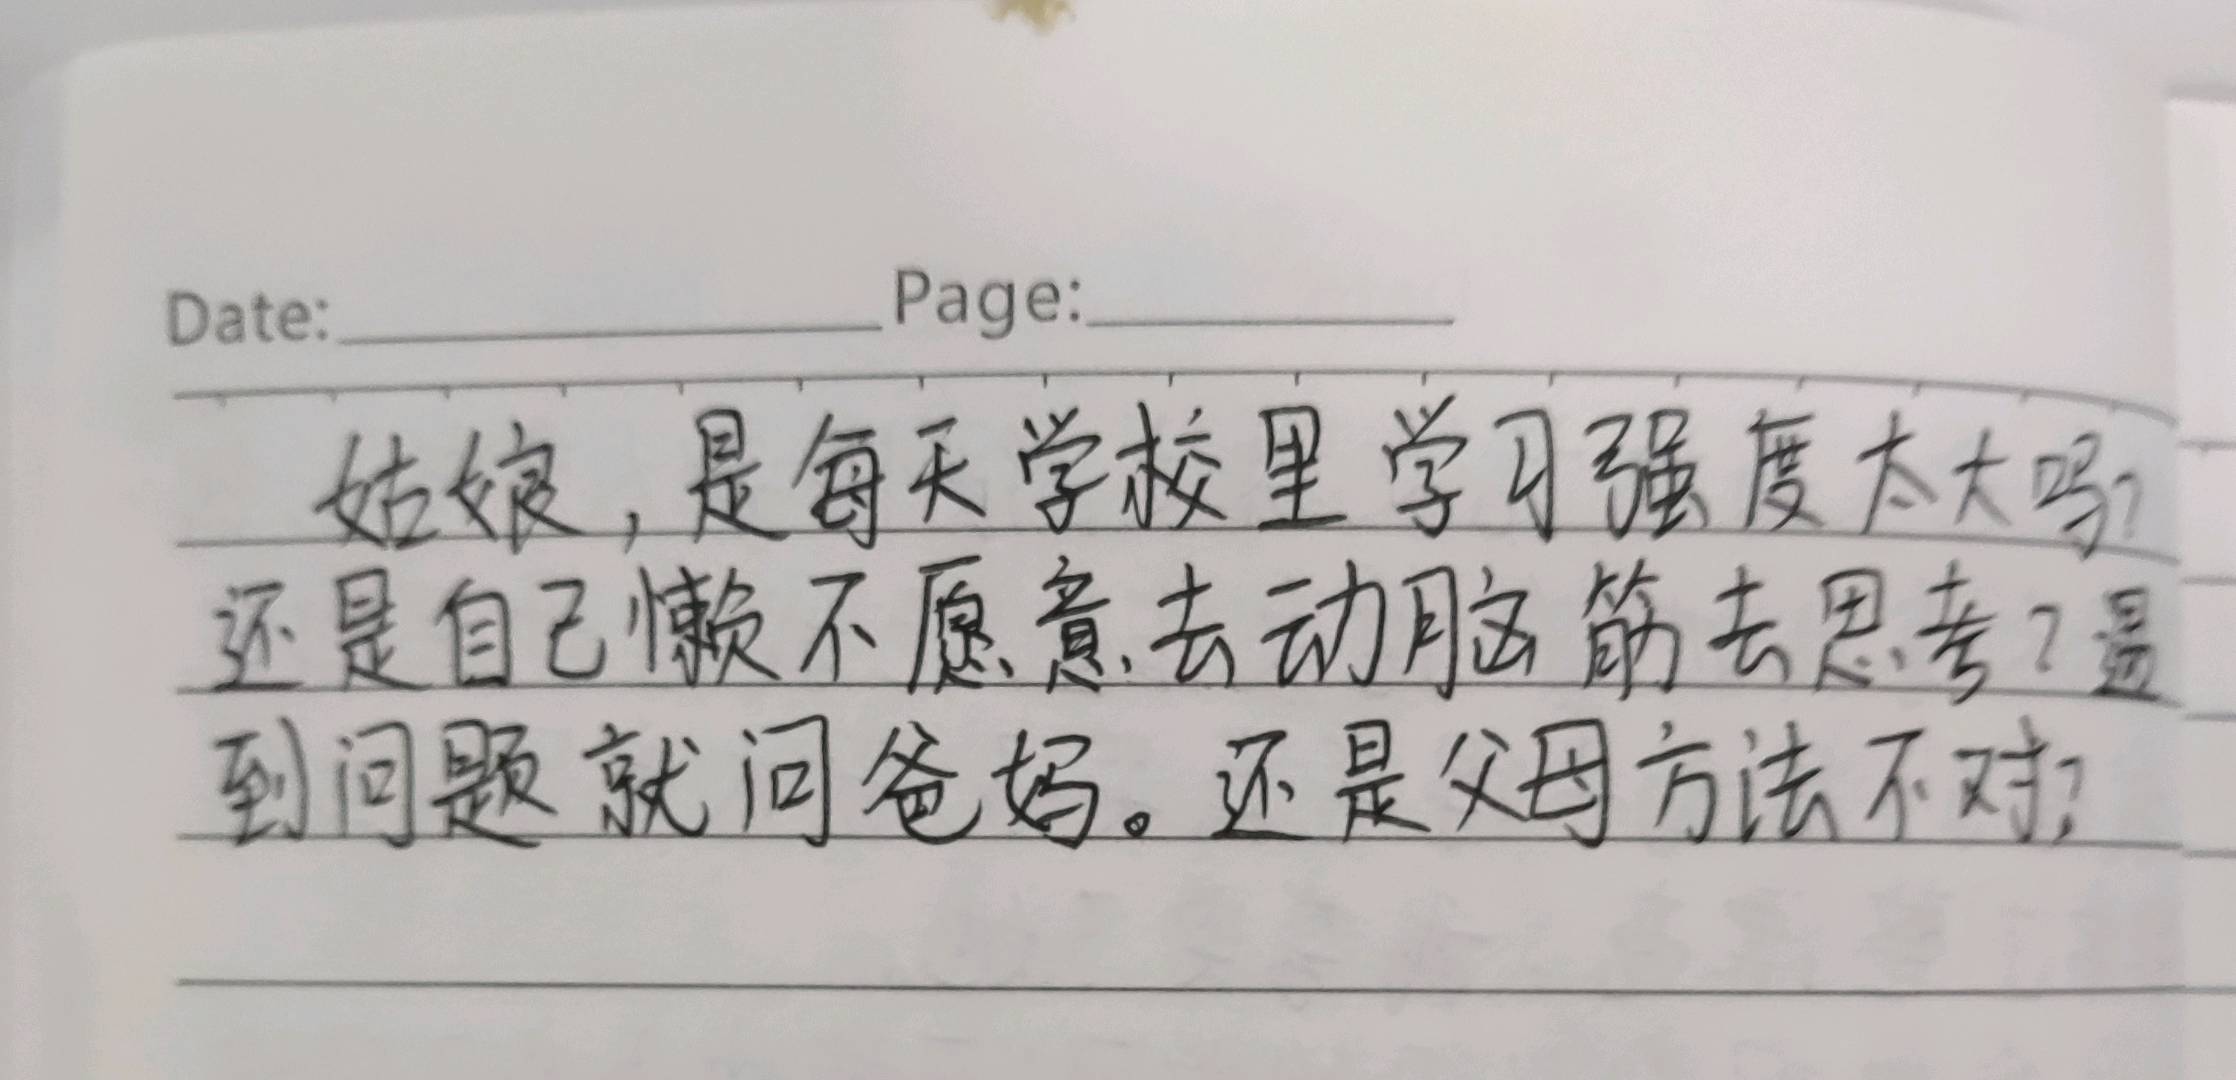 Date: Page:
姑娘，是每天学校里学习强度太大吗？
还是自己懒不愿意去动脑筋去思考？遇
到问题就问爸妈。还是父母方法不对？